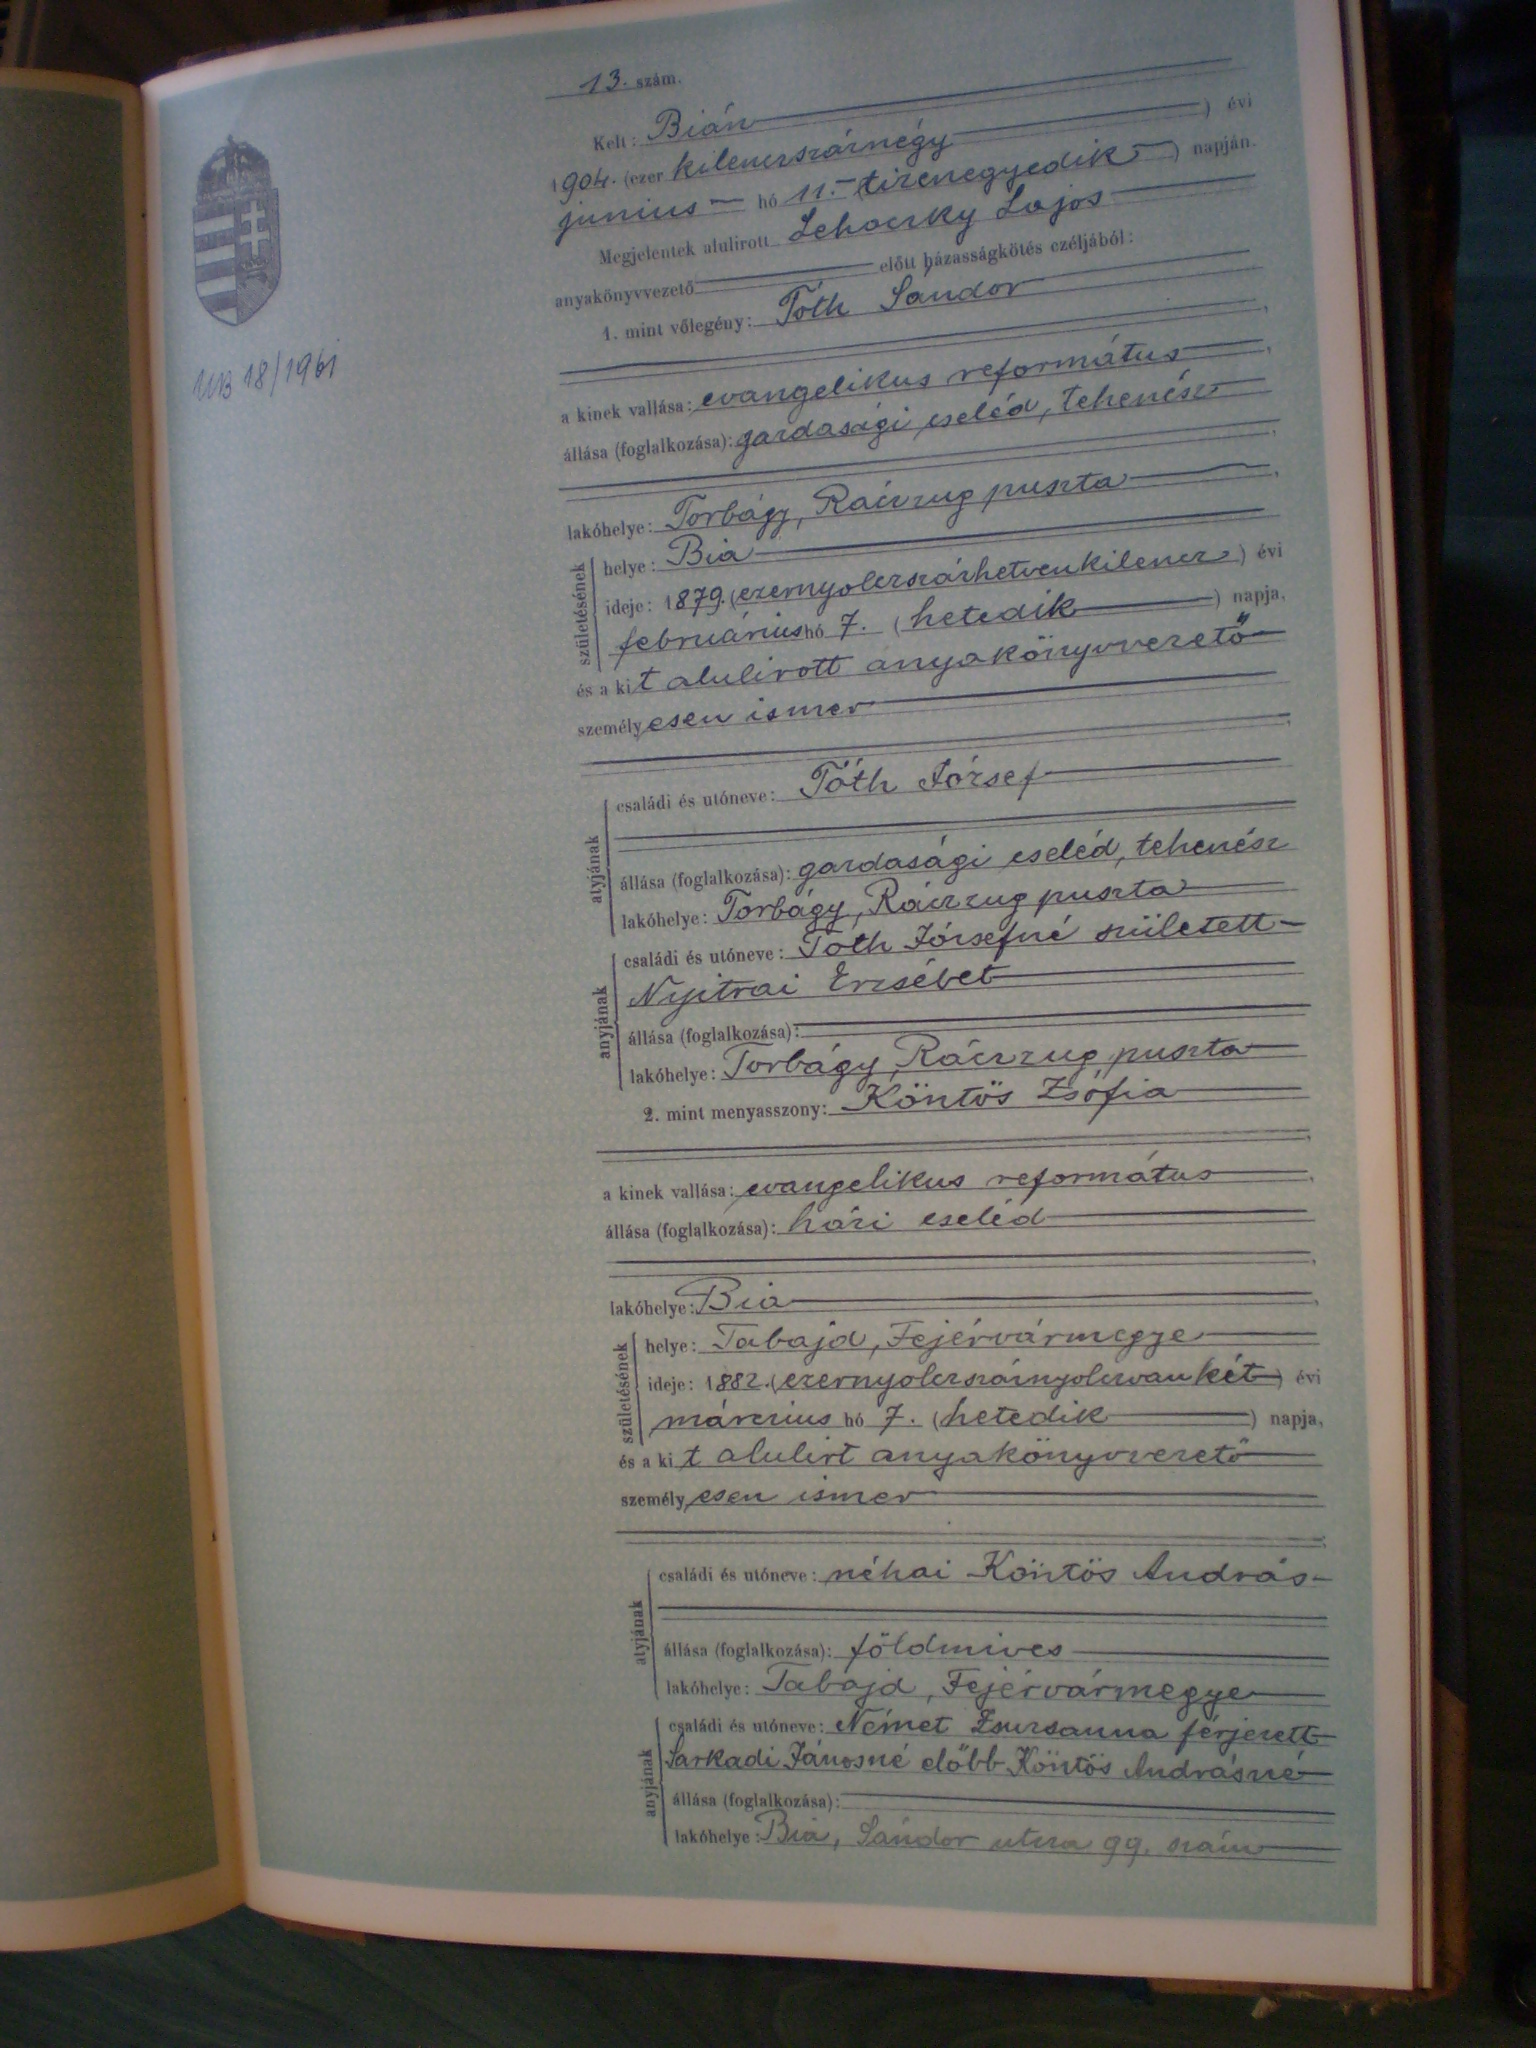 13. szám.
Kelt: Bián
1904. (ezer kilenczszáznégy ) évi
junius hó 11. (tizenegyedik ) napján.
Megjelentek alulirott Lehoczky Lajos
anyakönyvvezető előtt házasságkötés czéljából:
1. mint vőlegény: Tóth Sándor
UB 18/1961
a kinek vallása: evangelikus református
állása (foglalkozása): gazdasági cseléd, tehenész
lakóhelye: Torbágy, Ráczzug puszta
születésének
helye: Bia
ideje: 1879. (ezernyolczszázhetvenkilencz ) évi
február​ius hó 7. (hetedik ) napja,
és a kit alulirott anyakönyvvezető
személyesen ismer
atyjának
családi és utóneve: Tóth József
állása (foglalkozása): gazdasági cseléd, tehenész
lakóhelye: Torbágy, Ráczzug puszta
anyjának
családi és utóneve: Tóth Józsefné született
Nyitrai Erzsébet
állása (foglalkozása):
lakóhelye: Torbágy, Ráczzug puszta
2. mint menyasszony: Köntös Zsófia
a kinek vallása: evangelikus református
állása (foglalkozása): házi cseléd
lakóhelye: Bia
születésének
helye: Tabajd, Fejérvármegye
ideje: 1882. (ezernyolczszáznyolczvankét ) évi
márczius hó 7. (hetedik ) napja,
és a kit alulirt anyakönyvvezető
személyesen ismer
atyjának
családi és utóneve: néhai Köntös András
állása (foglalkozása): földmives
lakóhelye: Tabajd, Fejérvármegye
anyjának
családi és utóneve: Német Zsuzsanna férjezett
Sarkadi Jánosné előbb Köntös Andrásné
állása (foglalkozása):
lakóhelye: Bia, Sándor utcza 99. szám